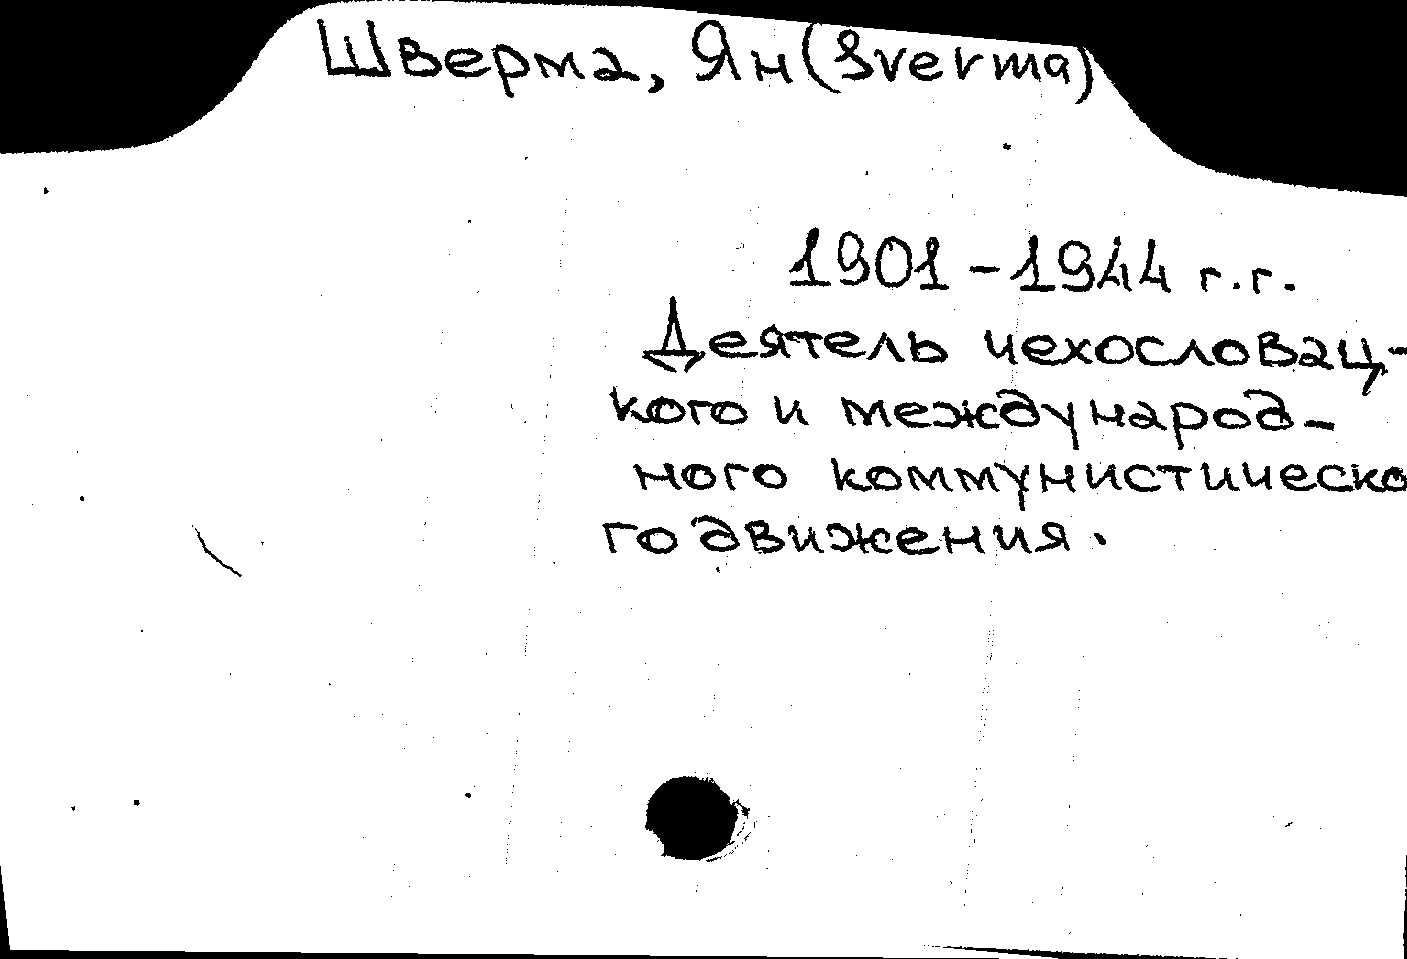 Шверма, Ян (Sverma)
1901-1944 г.г.
Деятель чехословац-
кого и международ-
ного коммунистическо
го движения.